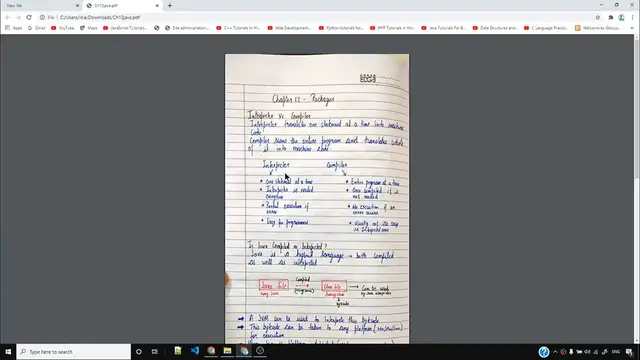 New Tab
Ch12java.pdf
File | C:/Users/
/Downloads/Ch12java.pdf
Apps
Gmail
YouTube
Maps
JavaScript Tutorials
Site administration
C++ Tutorials In Hindi
Web Development
Python tutorials for
PHP Tutorials In Hindi
Java Tutorials For
Data Structures and
C Language Practice
Welcome to
Chapter 12 - Packages
Interpreter Vs Compiler
Interpreter translates one statement at a time into machine
code
Compiler scans the entire program and translates whole
of it into machine code
Interpreter
Compiler
One statement at a time
Entire program at a time
Interpreter is needed
Once compiled it is
everytime
not needed
Partial execution if
No execution if an
error
error occurs
Easy for programmers
Usually not as easy
as interpreted ones
Is Java Compiled or Interpreted?
Java is a hybrid language → both compiled
as well as interpreted
Java file
Compiled
Class file
Can be used
by Java interpreter
bytecode
→ A JVM can be used to interpret this bytecode
→ This bytecode can be taken to any platform (win/mac/linux)
for execution
Type here to search
ENG